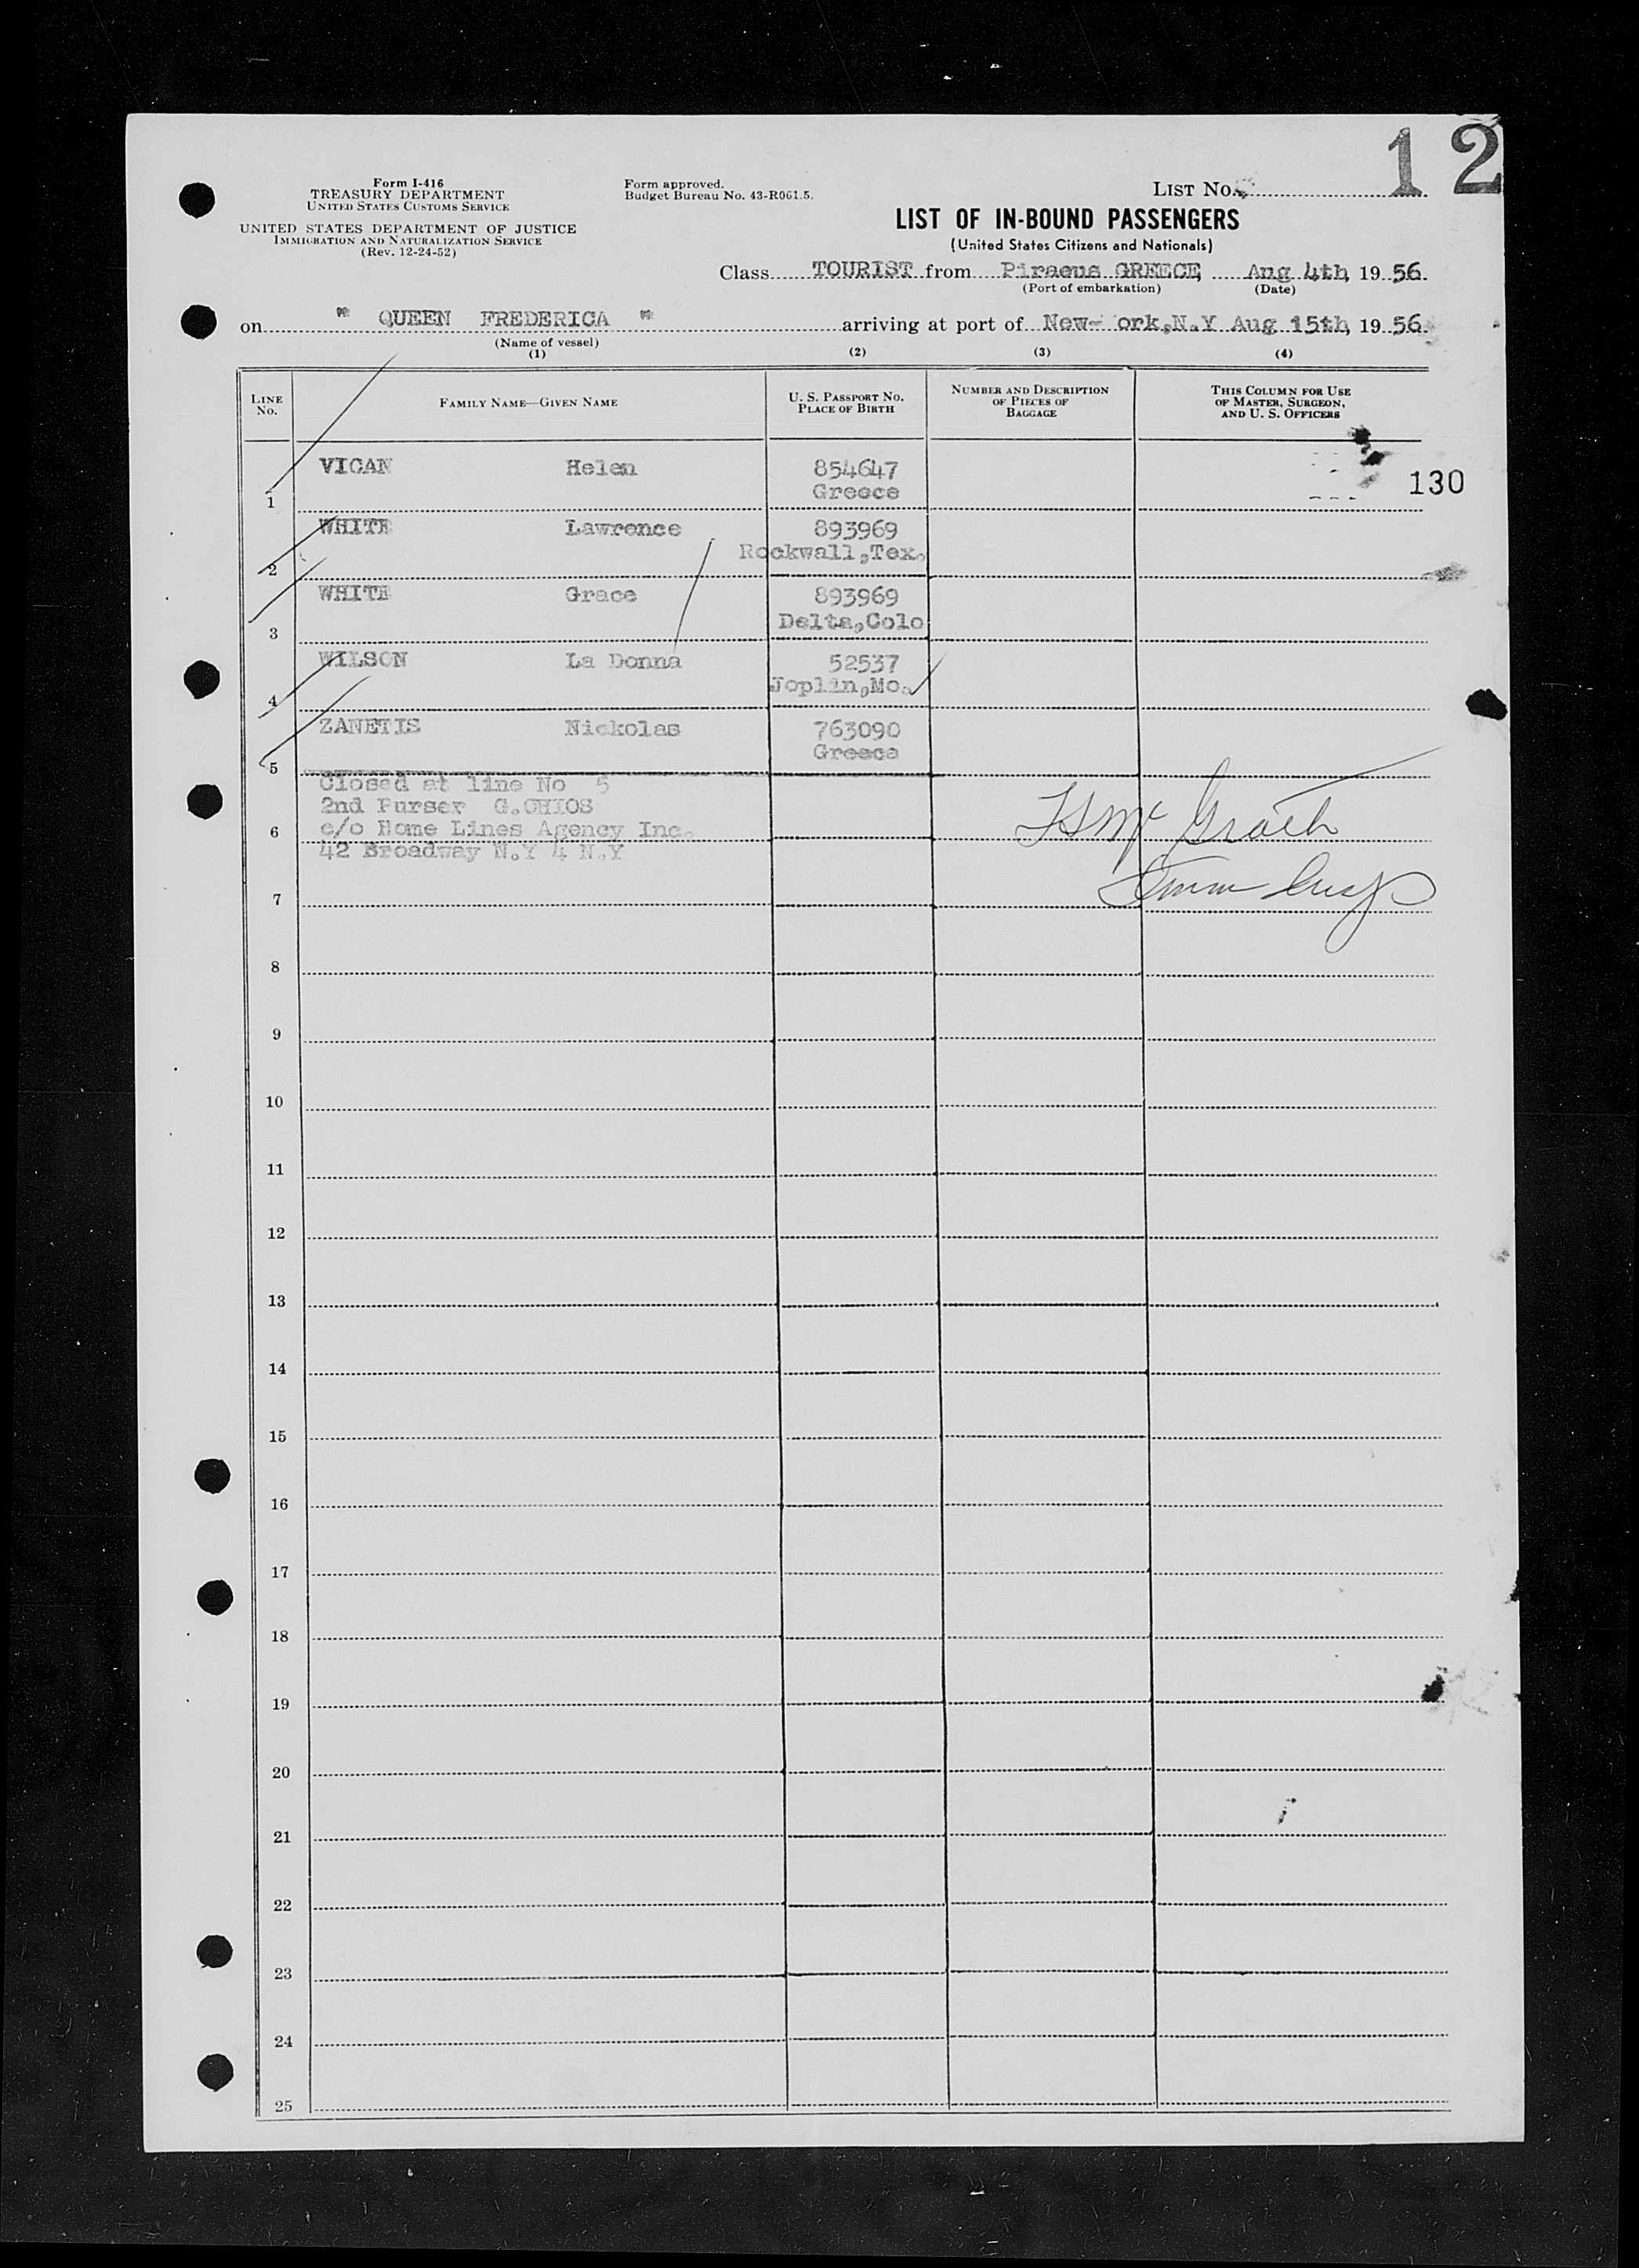 12
Form I-416
TREASURY DEPARTMENT
UNITED STATES CUSTOMS SERVICE
UNITED STATES DEPARTMENT OF JUSTICE
IMMIGRATION AND NATURALIZATION SERVICE
(Rev. 12-24-52)
Form approved.
Budget Bureau No. 43-R061.5.
LIST NO.
LIST OF IN-BOUND PASSENGERS
(United States Citizens and Nationals)
Class TOURIST from Piraeus GREECE, Aug 4th, 19 56.
(Port of embarkation) (Date)
on " QUEEN FREDERICA " arriving at port of New- ork,N.Y Aug 15th, 19 56.
(Name of vessel)
(1) (2) (3) (4)
LINE NO.
FAMILY NAME—GIVEN NAME
U. S. PASSPORT NO.
PLACE OF BIRTH
NUMBER AND DESCRIPTION
OF PIECES OF
BAGGAGE
THIS COLUMN FOR USE
OF MASTER, SURGEON,
AND U. S. OFFICERS
VICAN Helen 854647
Greece
1
130
WHITE Lawrence 893969
Rockwall,Tex.
2
WHITE Grace 893969
Delta,Colo
3
WILSON La Donna 52537
Joplin,Mo.
4
ZANETIS Nickolas 763090
Greece
5
Closed at line No 5
2nd Purser G.CHIOS
c/o Home Lines Agency Inc.
6
42 Broadway N.Y 4 N.Y
Mc Grath
7
8
9
10
11
12
13
14
15
16
17
18
19
20
21
22
23
24
25